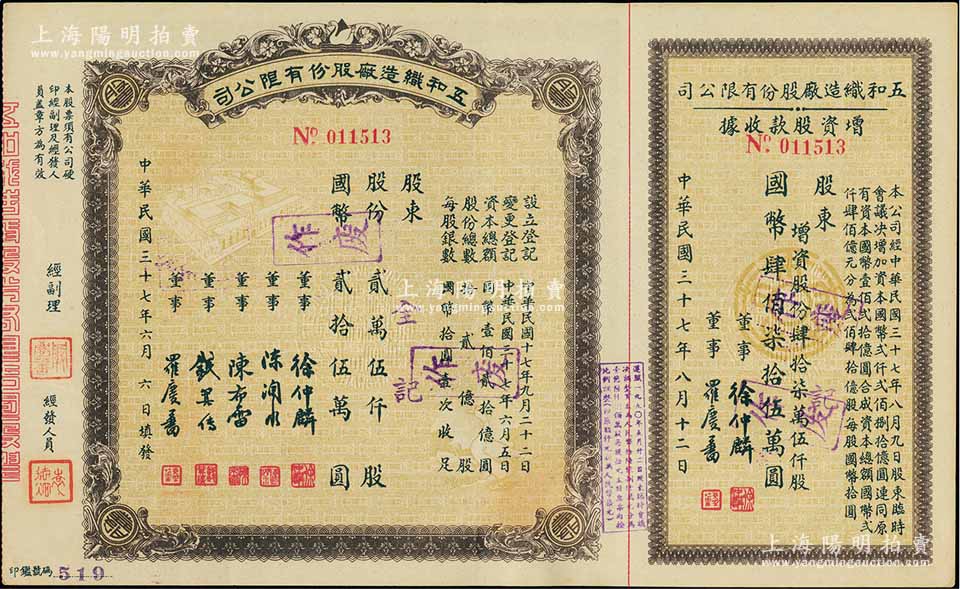 上海陽明拍賣
www.yangmingauction.com
五和織造廠股份有限公司
No 011513
設立登記 中華民國十七年九月二十二日
變更登記 中華民國三十七年六月五日
資本總額 國幣壹佰貳拾億圓
股份總數 拾貳億股
每股銀數 國幣拾圓壹次收足
股東
全記
股份 貳萬伍仟 股
國幣 貳拾伍萬 圓
作廢
作廢
董事 徐仲麟
董事
董事 陳布雷
董事
董事 羅慶蕃
中華民國三十七年六月六日填發
本股票須有公司硬
印經副理及經發人
員蓋章方為有效
經副理
經發人員
印鑑號碼 519
五和織造廠股份有限公司
增資股款收據
No 011513
本公司經中華民國三十七年八月九日股東臨時
會議决增加資本國幣弍仟弍佰捌拾億圓連同原
有資本國幣壹佰弍拾億圓合成資本總額國幣弍
仟肆佰億元分為弍佰肆拾億股每股國幣拾圓
股東
記
增資股份肆拾柒萬伍仟股
國幣肆佰柒拾伍萬圓
作廢
董事 徐仲麟
董事 羅慶蕃
中華民國三十七年八月十二日
上海陽明拍賣
www.yangmingauction.com
上海陽明拍賣
www.yangmingauction.com
上海陽明拍賣
www.yangmingauction.com